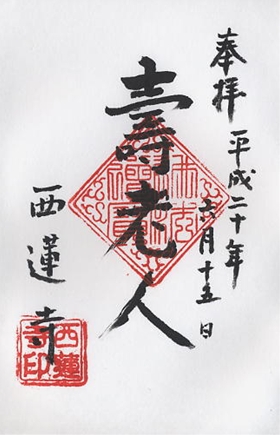 奉拝 平成二十年
六月十五日
壽老人
西蓮寺
西蓮
寺印